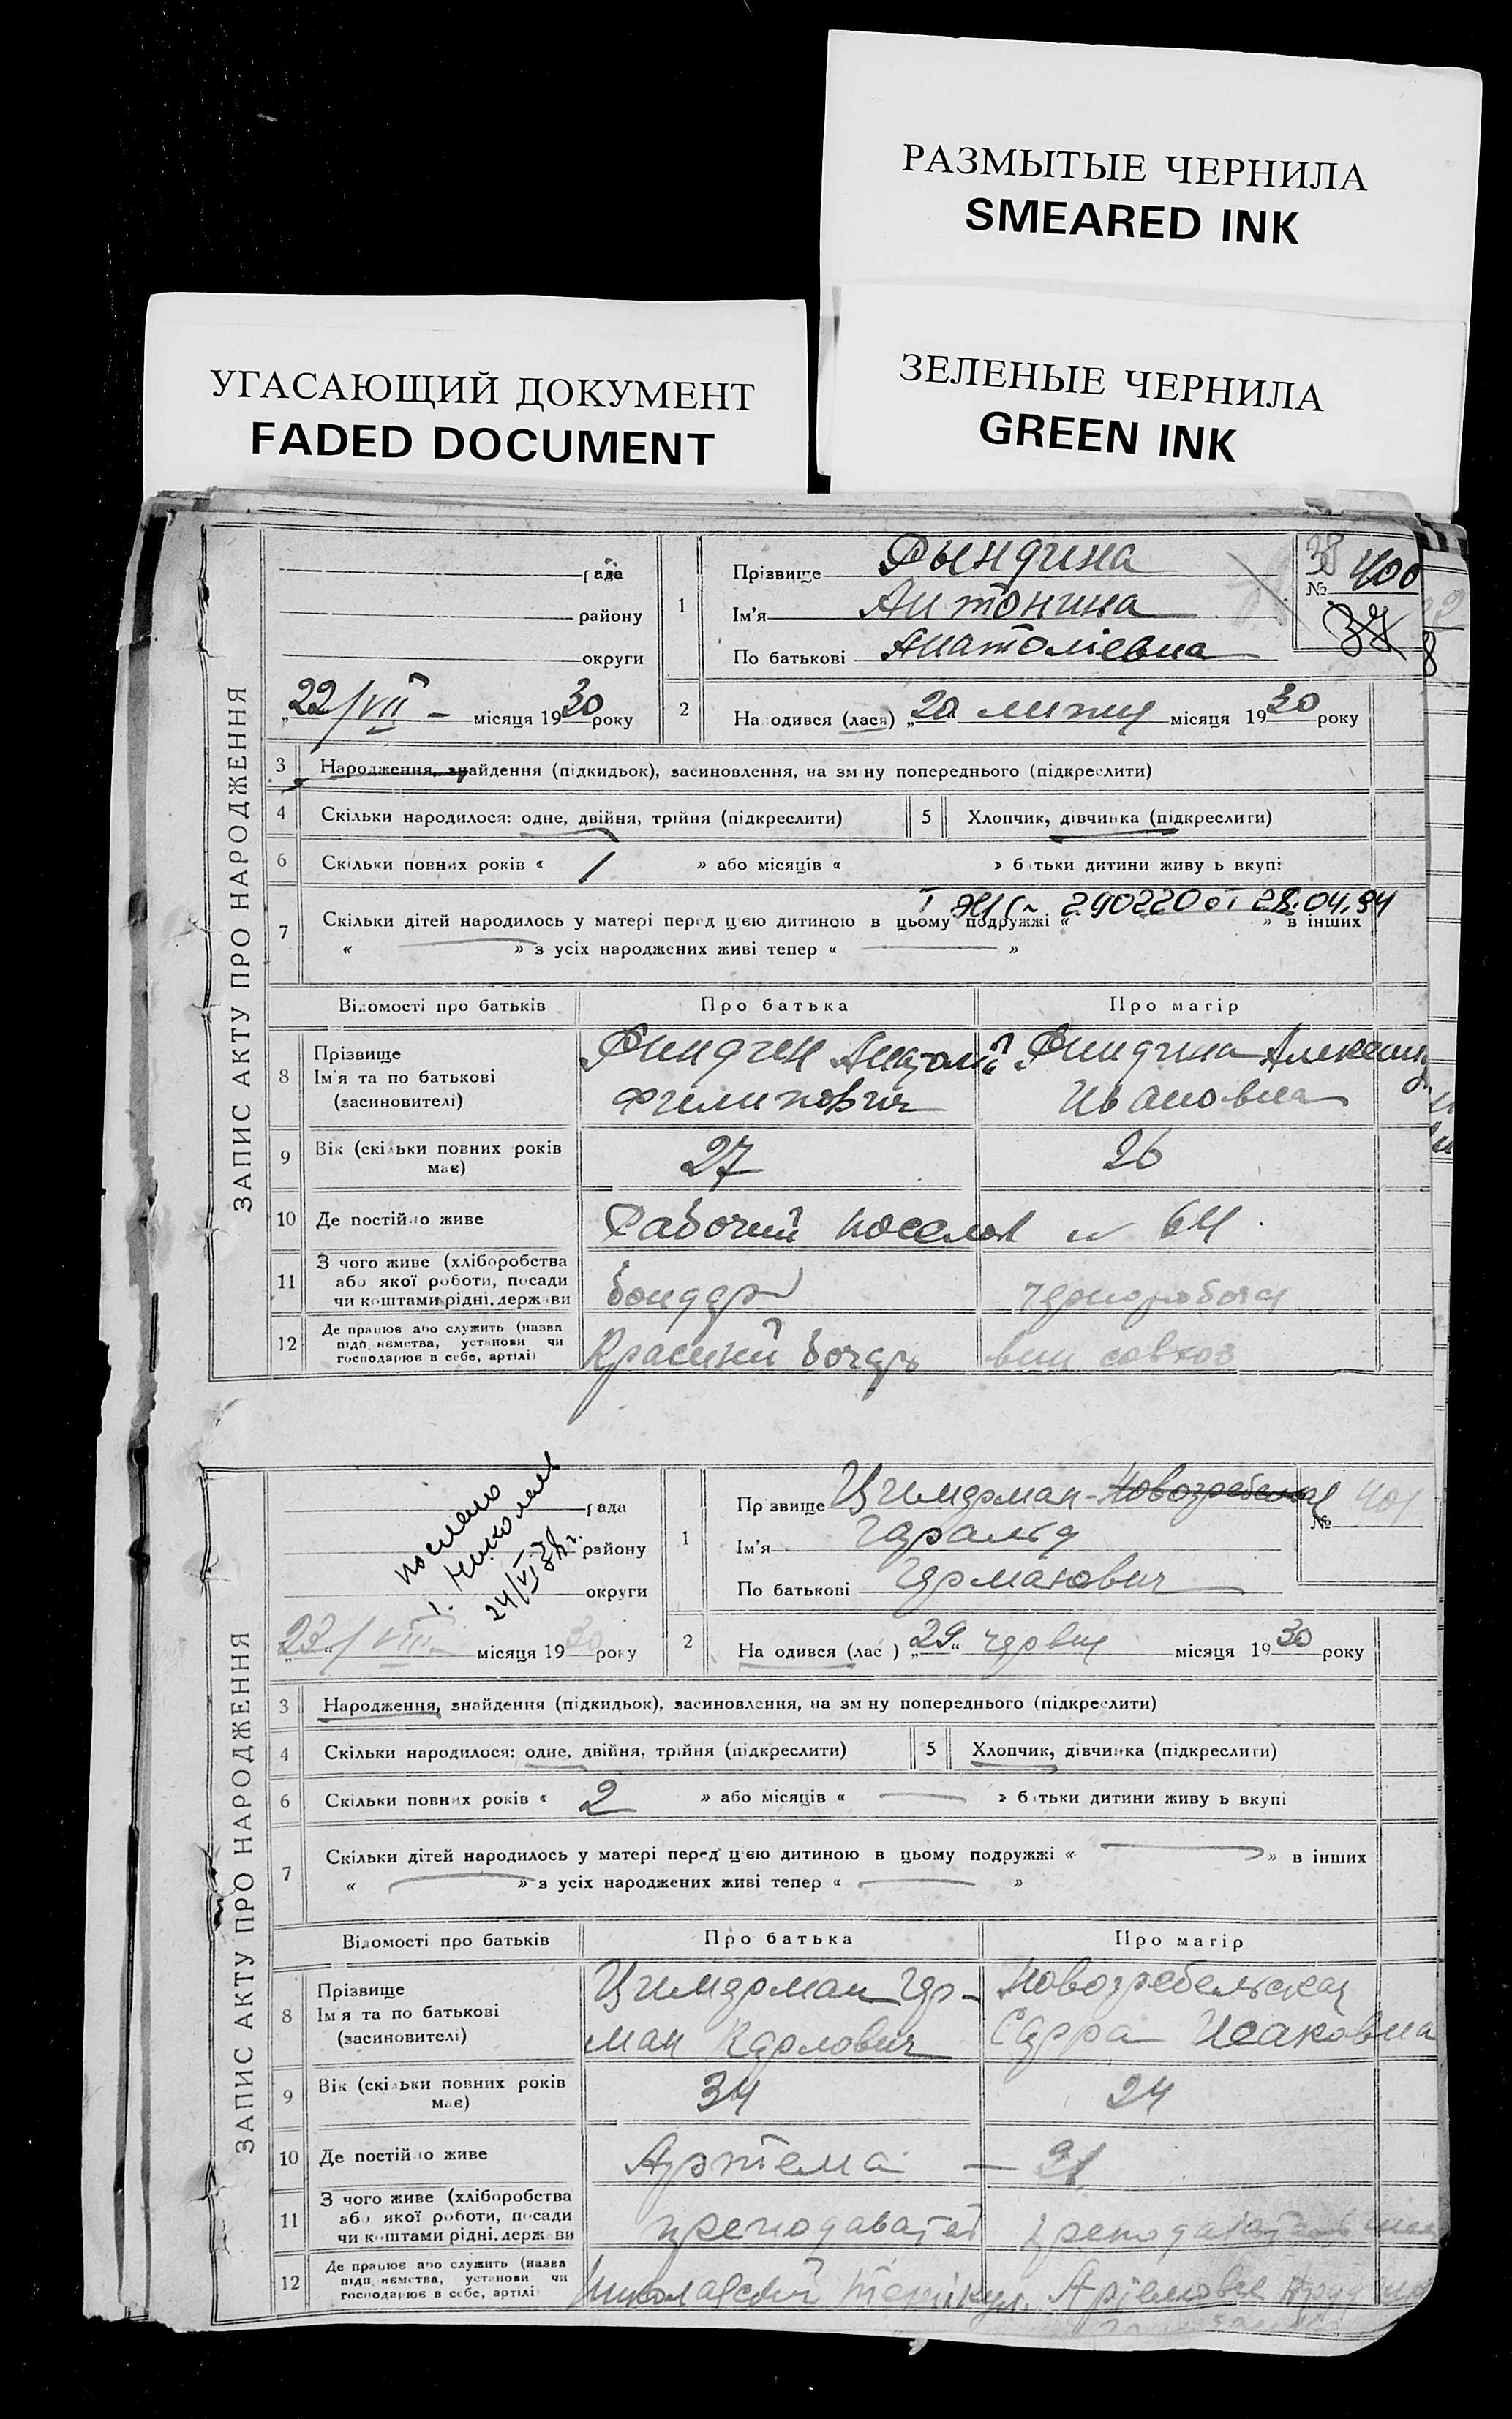 РАЗМЫТЫЕ ЧЕРНИЛА
SMEARED INK
УГАСАЮЩИЙ ДОКУМЕНТ
FADED DOCUMENT
ЗЕЛЕНЫЕ ЧЕРНИЛА
GREEN INK
ЗАПИС АКТУ ПРО НАРОДЖЕННЯ
рада
району
округи
22/VII місяця 1930 року
1
Прізвище Рындина
Ім'я Антонина
По батькові Анатоліевна
№ 400
38
37
2 На одився (лася) „20 липня місяця 1930 року
3 Народження, знайдення (підкидьок), засиновлення, на зм ну попереднього (підкреслити)
4 Скільки народилося: одне, двійня, трійня (підкреслити) 5 Хлопчик, дівчинка (підкреслити)
6 Скільки повних років « 1 » або місяців « » б тьки дитини живу ь вкупі
290220 от 28.04.94
7 Скільки дітей народилось у матері перед цією дитиною в цьому подружжі « » в інших
« » з усіх народжених живі тепер « »
Відомості про батьків Про батька Про матір
8 Прізвище
Ім'я та по батькові
(засиновителі)
Риндин Анатолій
Филипович
Риндина
Ивановна
9 Вік (скільки повних років
має)
27 26
10 Де постійно живе Рабочий поселок № 64
11 З чого живе (хліборобства
або якої роботи, посади
чи коштами рідні, держави
бондарь чернорабоча
12 Де працює або служить (назва
підп ємства, установи чи
господарює в себе, артілі)
Красний бочарь вин совхоз
ЗАПИС АКТУ ПРО НАРОДЖЕННЯ
рада
району
округи
послано
24/VI
23/VIII місяця 1930 року
1
Пр звище Цимерман-Новогребельский
Ім'я Геральд
По батькові Германович
№ 401
2 На одився (лас ) „29“ червня місяця 1930 року
3 Народження, знайдення (підкидьок), засиновлення, на зм ну попереднього (підкреслити)
4 Скільки народилося: одне, двійня, трійня (підкреслити) 5 Хлопчик, дівчинка (підкреслити)
6 Скільки повних років « 2 » або місяців « » б тьки дитини живу ь вкупі
7 Скільки дітей народилось у матері перед цією дитиною в цьому подружжі « » в інших
« » з усіх народжених живі тепер « »
Відомості про батьків Про батька Про матір
8 Прізвище
Ім'я та по батькові
(засиновителі)
Цимерман Гер-
ман Карлович
Новогребельская
Сарра Исаковна
9 Вік (скільки повних років
має)
34 24
10 Де постійно живе Артема — 21
11 З чого живе (хліборобства
або якої роботи, посади
чи коштами рідні, держави
преподаватель преподаватель
12 Де працює або служить (назва
підп ємства, установи чи
господарює в себе, артілі)